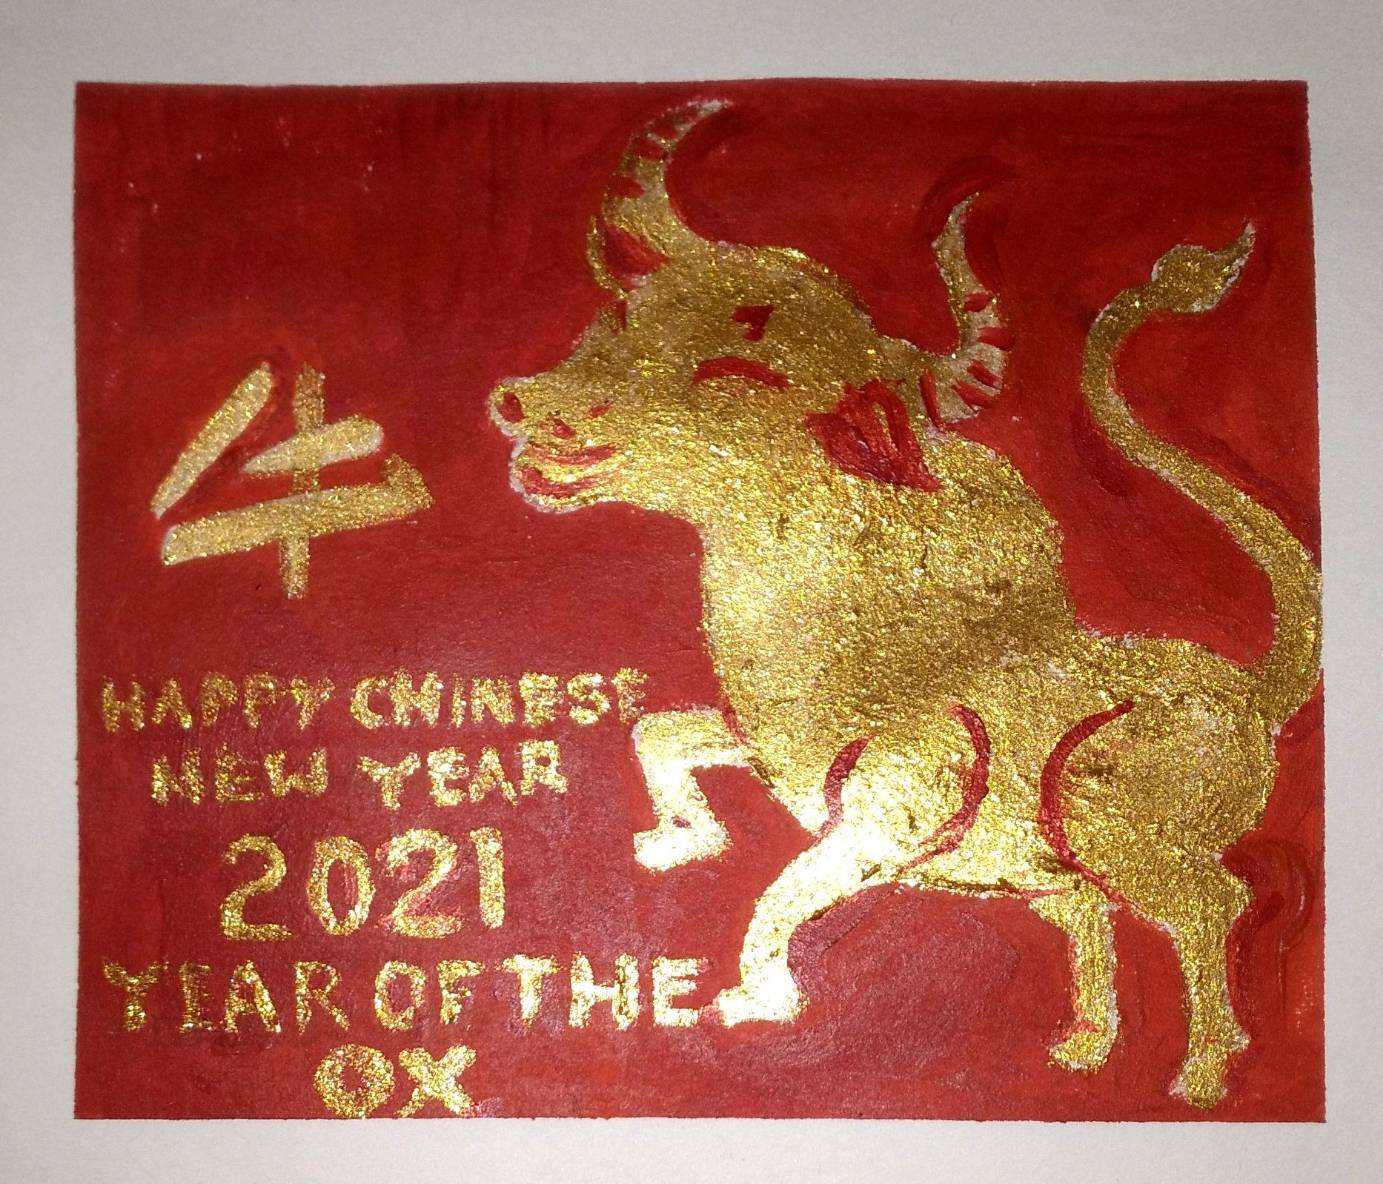 牛
HAPPY CHINESE
NEW YEAR
2021
YEAR OF THE
OX